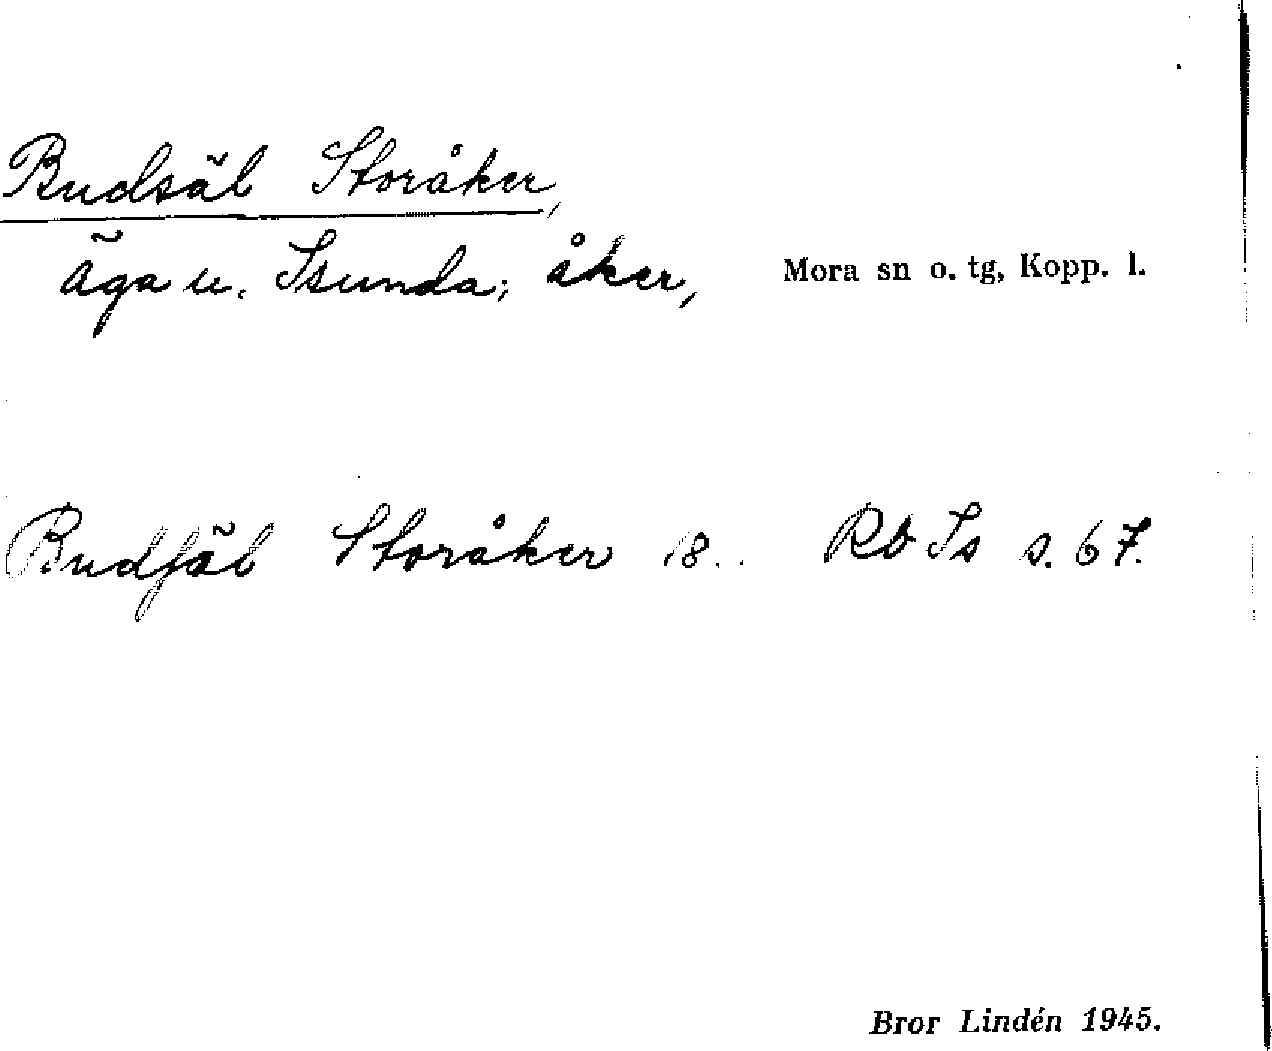 Budsäl Storåker,
äga u. Isunda; åker, Mora sn o. tg, Kopp. l.
Budſäl Storåker 18.. Rb Is s. 67.
Bror Lindén 1945.